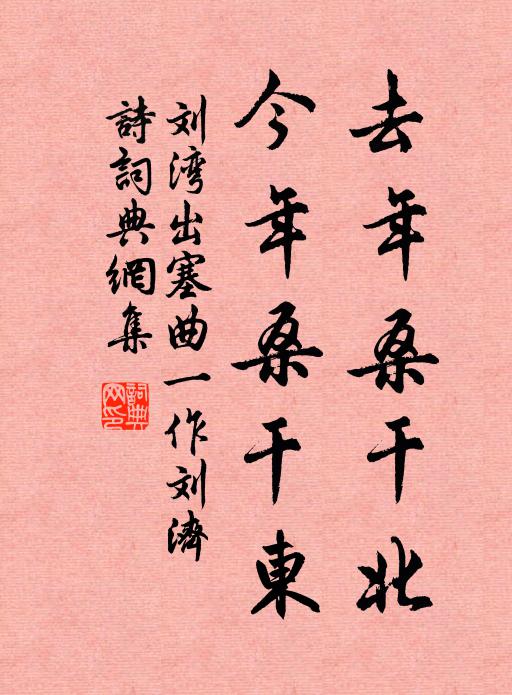 去年桑干北
今年桑干東
刘湾出塞曲一作刘濟
詩詞典網集
詞典网印